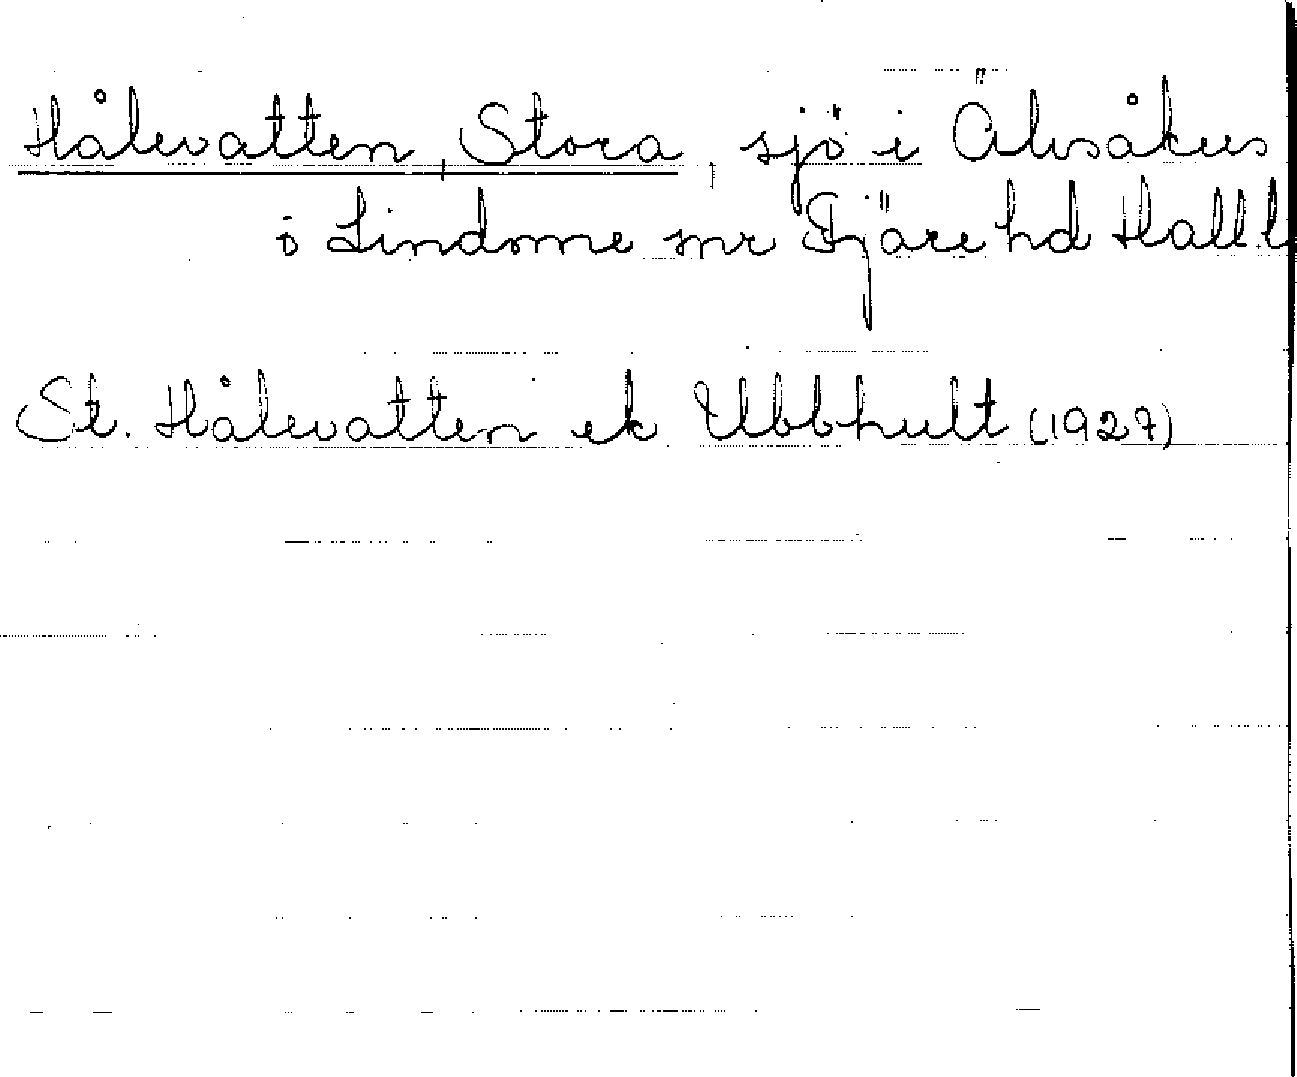 Hålevatten, Stora, sjö i Älvsåkers
i Lindome snr Fjäre hd Hall l
St. Hålevatten ek Ubbhult (1927)